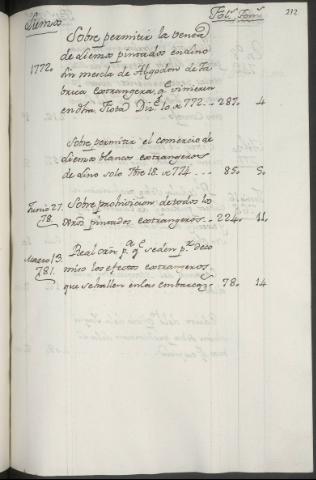 Lienzos Fols. Toms. 212
Sobre permitir la venta
de Liensos pintados en Lino
1772. sin mescla de Algodon de fa
brica extrangera qe vinieren
en dha Flota Dizre. 10 x 772. .. 287. 4
Sobre permitir el comercio de
Liensos blancos extrangeros
de Lino solo 18. x 774 ... 85. 5.
Junio 27. Sobre prohivicion de todos lo
78. pintados extrangeros .. 224. 11.
Marzo 13. Real orn pa. qe se den pr. deco
781. miso los efectos extrangeros
que se hallen en las embarcaz. 78. 14